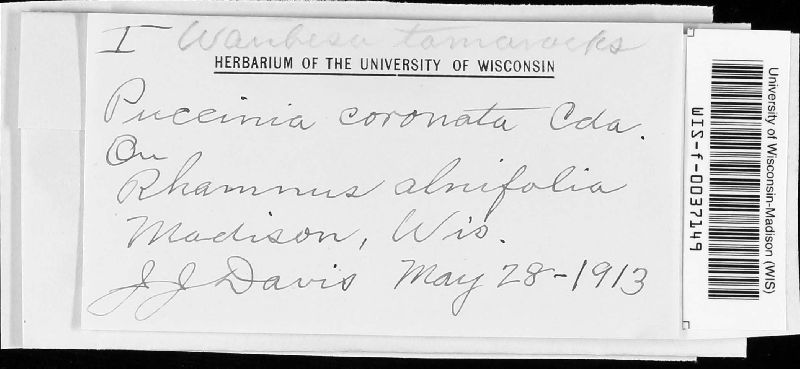 I Waubesa tamaracks
HERBARIUM OF THE UNIVERSITY OF WISCONSIN
Puccinia coronata Cda.
On
Rhamnus alnifolia
Madison, Wis.
J J Davis May 28-1913
University of Wisconsin-Madison (WIS)
WIS-f-0037149